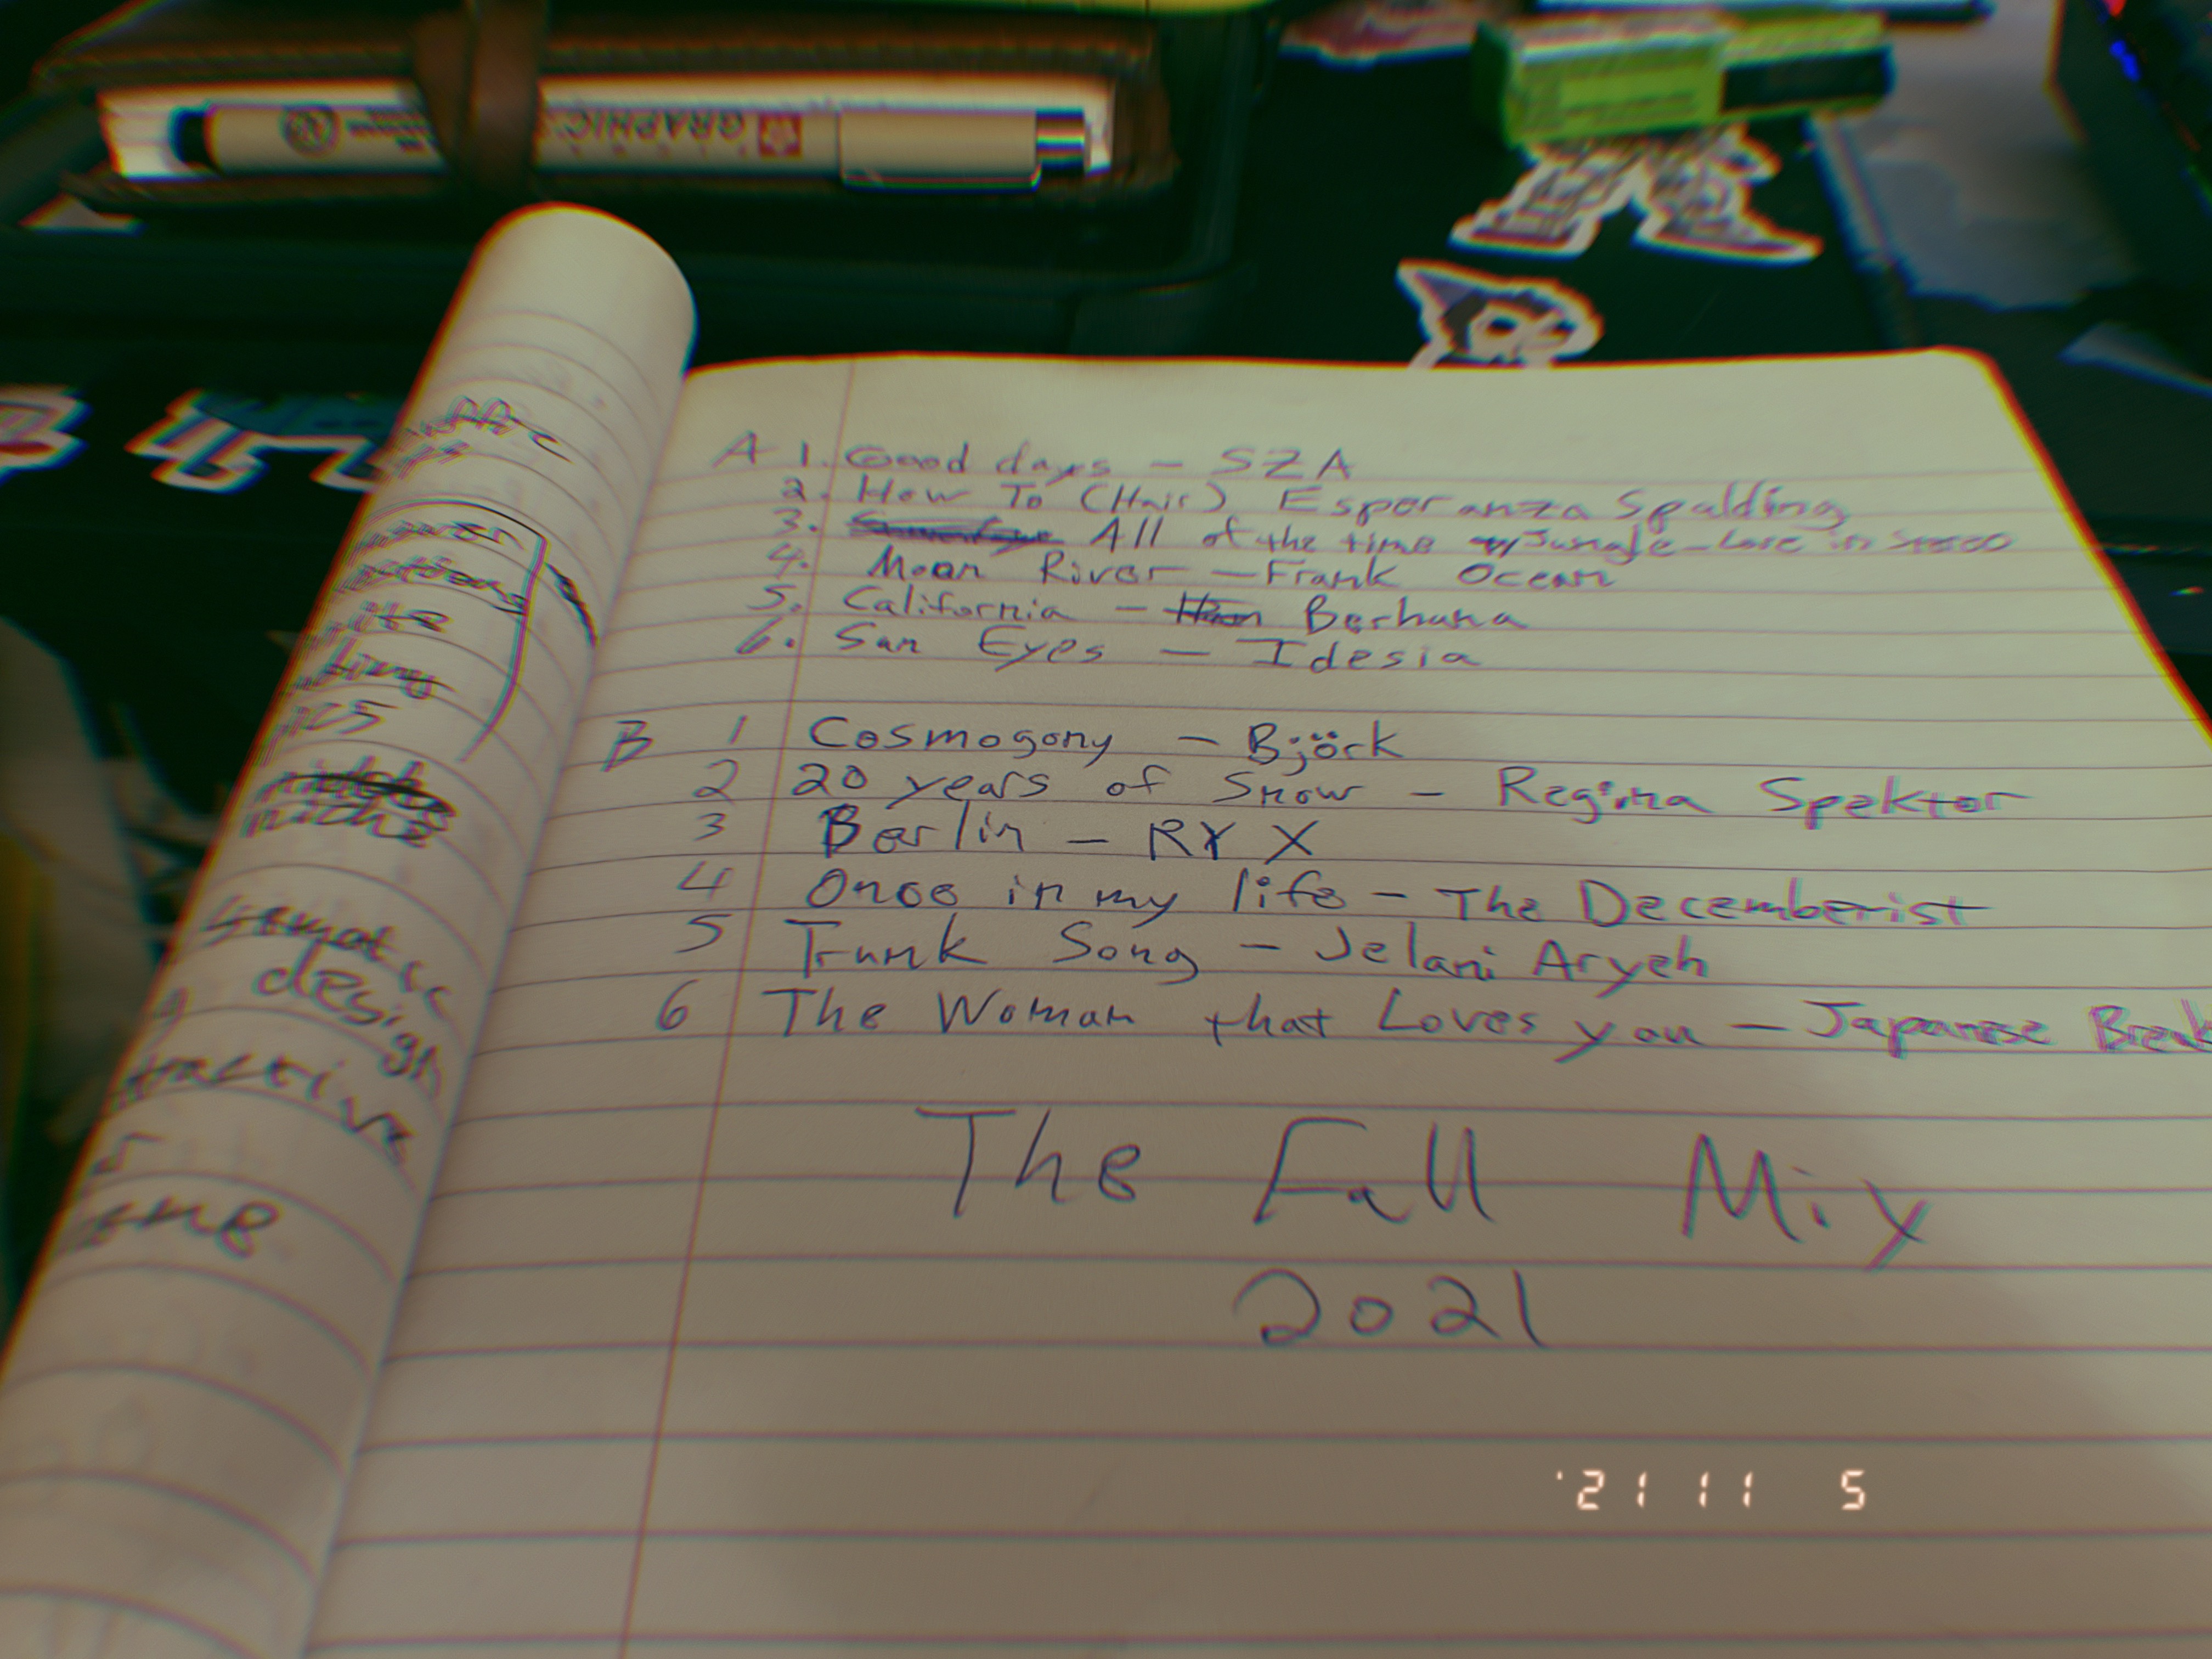 GRAPHIC
A 1. Good days - SZA
2. How To (Hair) Esperanza Spalding
3. All of the time w/ Jungle - Love in stereo
4. Moon River - Frank Ocean
5. California - Berhana
6. San Eyes - Idesia
B 1 Cosmogony - Björk
2 20 years of Snow - Regina Spektor
3 Berlin - RY X
4 Once in my life - The Decemberist
5 Trunk Song - Jelani Aryeh
6 The Woman that Loves you - Japanese Break
The Fall Mix
2021
niche
design
'21 11 5